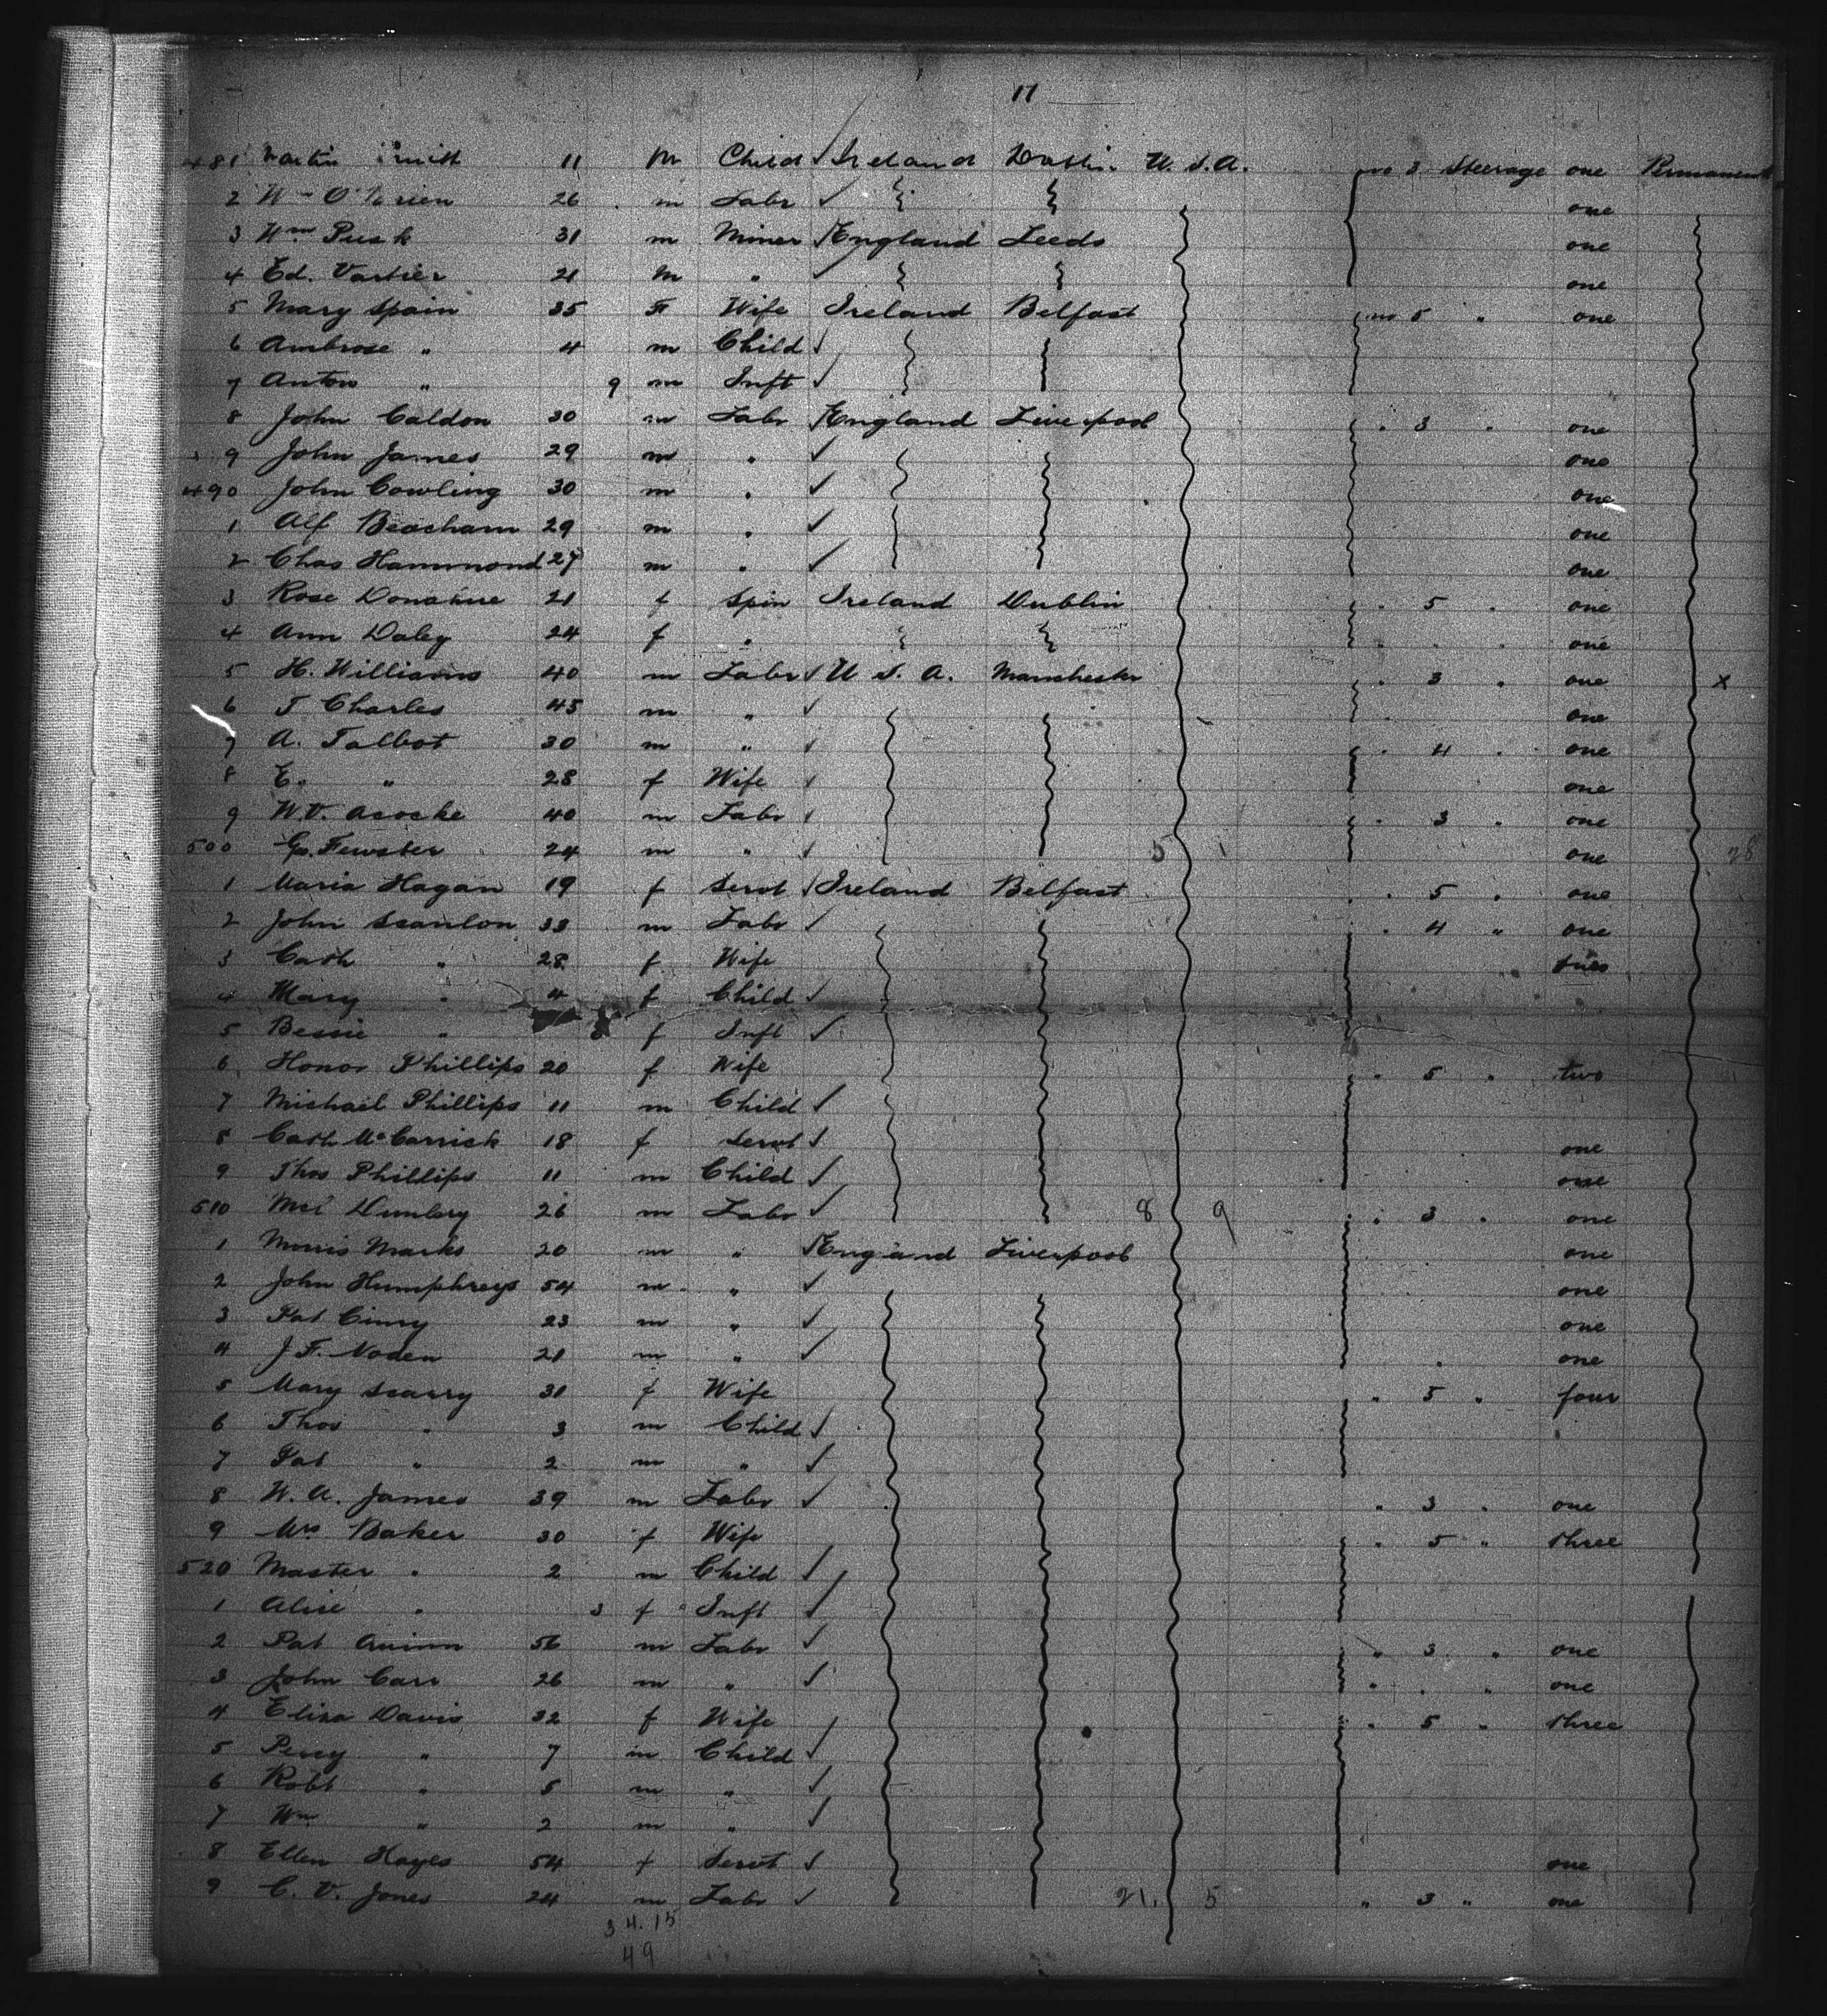 11
481 Martin Smith 11 m Child ✓ Ireland Dublin U.S.A. no 3 Steerage one Permanent
2 Wm O'Brien 26 m Labr ✓ one
3 Wm Pusk 31 m Miner ✓ England Leeds one
4 Ed. Vartier 21 m " ✓ one
5 Mary Spain 35 F Wife Ireland Belfast no 5 " one
6 Ambrose " 4 m Child ✓
7 Anton " 9 m Inft ✓
8 John Caldon 30 m Labr ✓ England Liverpool " 3 " one
9 John James 29 m " ✓ one
490 John Cowling 30 m " ✓ one
1 Alf Beacham 29 m " ✓ one
2 Chas Hammond 27 m " ✓ one
3 Rose Donahue 21 f Spin Ireland Dublin " 5 " one
4 Ann Daley 24 f " " " one
5 H. Williams 40 m Labr ✓ U.S.A. Manchester " 3 " one x
6 T Charles 45 m " ✓ " one
7 A. Talbot 30 m " ✓ " 4 " one
8 E. " 28 f Wife ✓ one
9 W.V. 40 m Labr ✓ " 3 " one
500 Geo. Fewster 24 m " ✓ 5 1 one 28
1 Maria Hagan 19 f Servt ✓ Ireland Belfast " 5 " one
2 John Scanlon 33 m Labr ✓ " 4 " one
3 Cath " 28 f Wife
4 Mary " 4 f Child ✓
5 Bessie " f Inft ✓
6 Honor Phillips 20 f Wife " 5 " two
7 Michael Phillips 11 m Child ✓
8 Cath McCarrick 18 f Servt ✓ one
9 Thos Phillips 11 m Child ✓ one
510 Mcl Dunlevy 26 m Labr ✓ 8 9 " 3 " one
1 Morris Marks 20 m " ✓ England Liverpool one
2 John Humphreys 54 m " ✓ one
3 Pat 23 m " ✓ one
4 J.F. Noden 21 m " ✓ " one
5 Mary Scarry 31 f Wife " 5 " four
6 Thos " 3 m Child ✓
7 Pat " 2 m " ✓
8 W.A. James 39 m Labr ✓ " 3 " one
9 Mrs Baker 30 f Wife " 5 " three
520 Master " 2 m Child ✓
1 Alice " 3 f Inft ✓
2 Pat Quinn 56 m Labr ✓ " 3 " one
3 John Carr 26 m " ✓ " " " one
4 Eliza Davis 32 f Wife " 5 " three
5 Percy " 7 m Child ✓
6 Robt " 5 m " ✓
7 Wm " 2 m " ✓
8 Ellen Hayes 54 f Servt ✓ one
9 C.V. Jones 24 m Labr ✓ 21. 5 " 3 " one
34.15
49